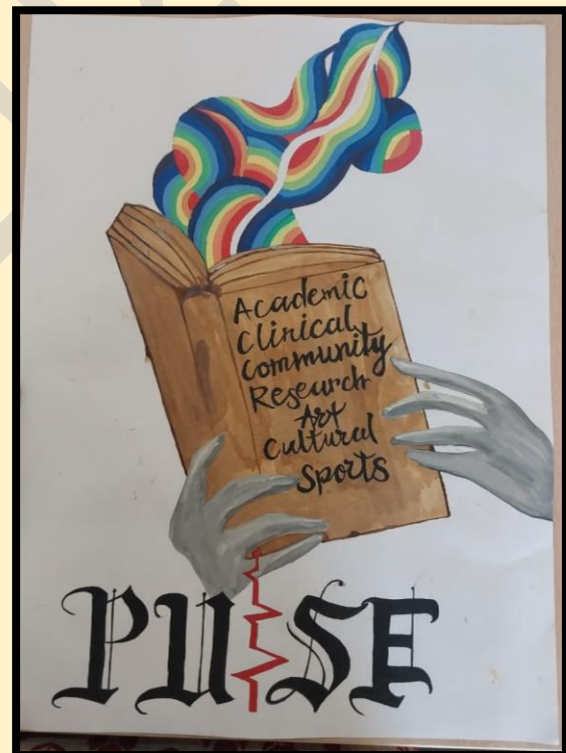 Academic
Clinical
Community
Research
Art
Cultural
Sports
PULSE